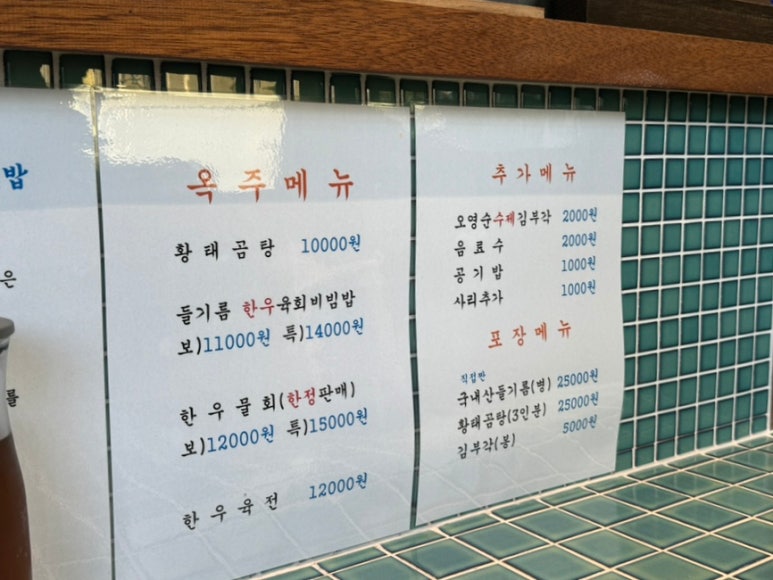 밥
은
를
옥주메뉴
황태곰탕 10000원
들기름 한우육회비빔밥
보)11000원 특)14000원
한우물회(한정판매)
보)12000원 특)15000원
한우육전 12000원
추가메뉴
오영순수제김부각 2000원
음료수 2000원
공기밥 1000원
사리추가 1000원
포장메뉴
직접짠
국내산들기름(병) 25000원
황태곰탕(3인분) 25000원
김부각(봉) 5000원